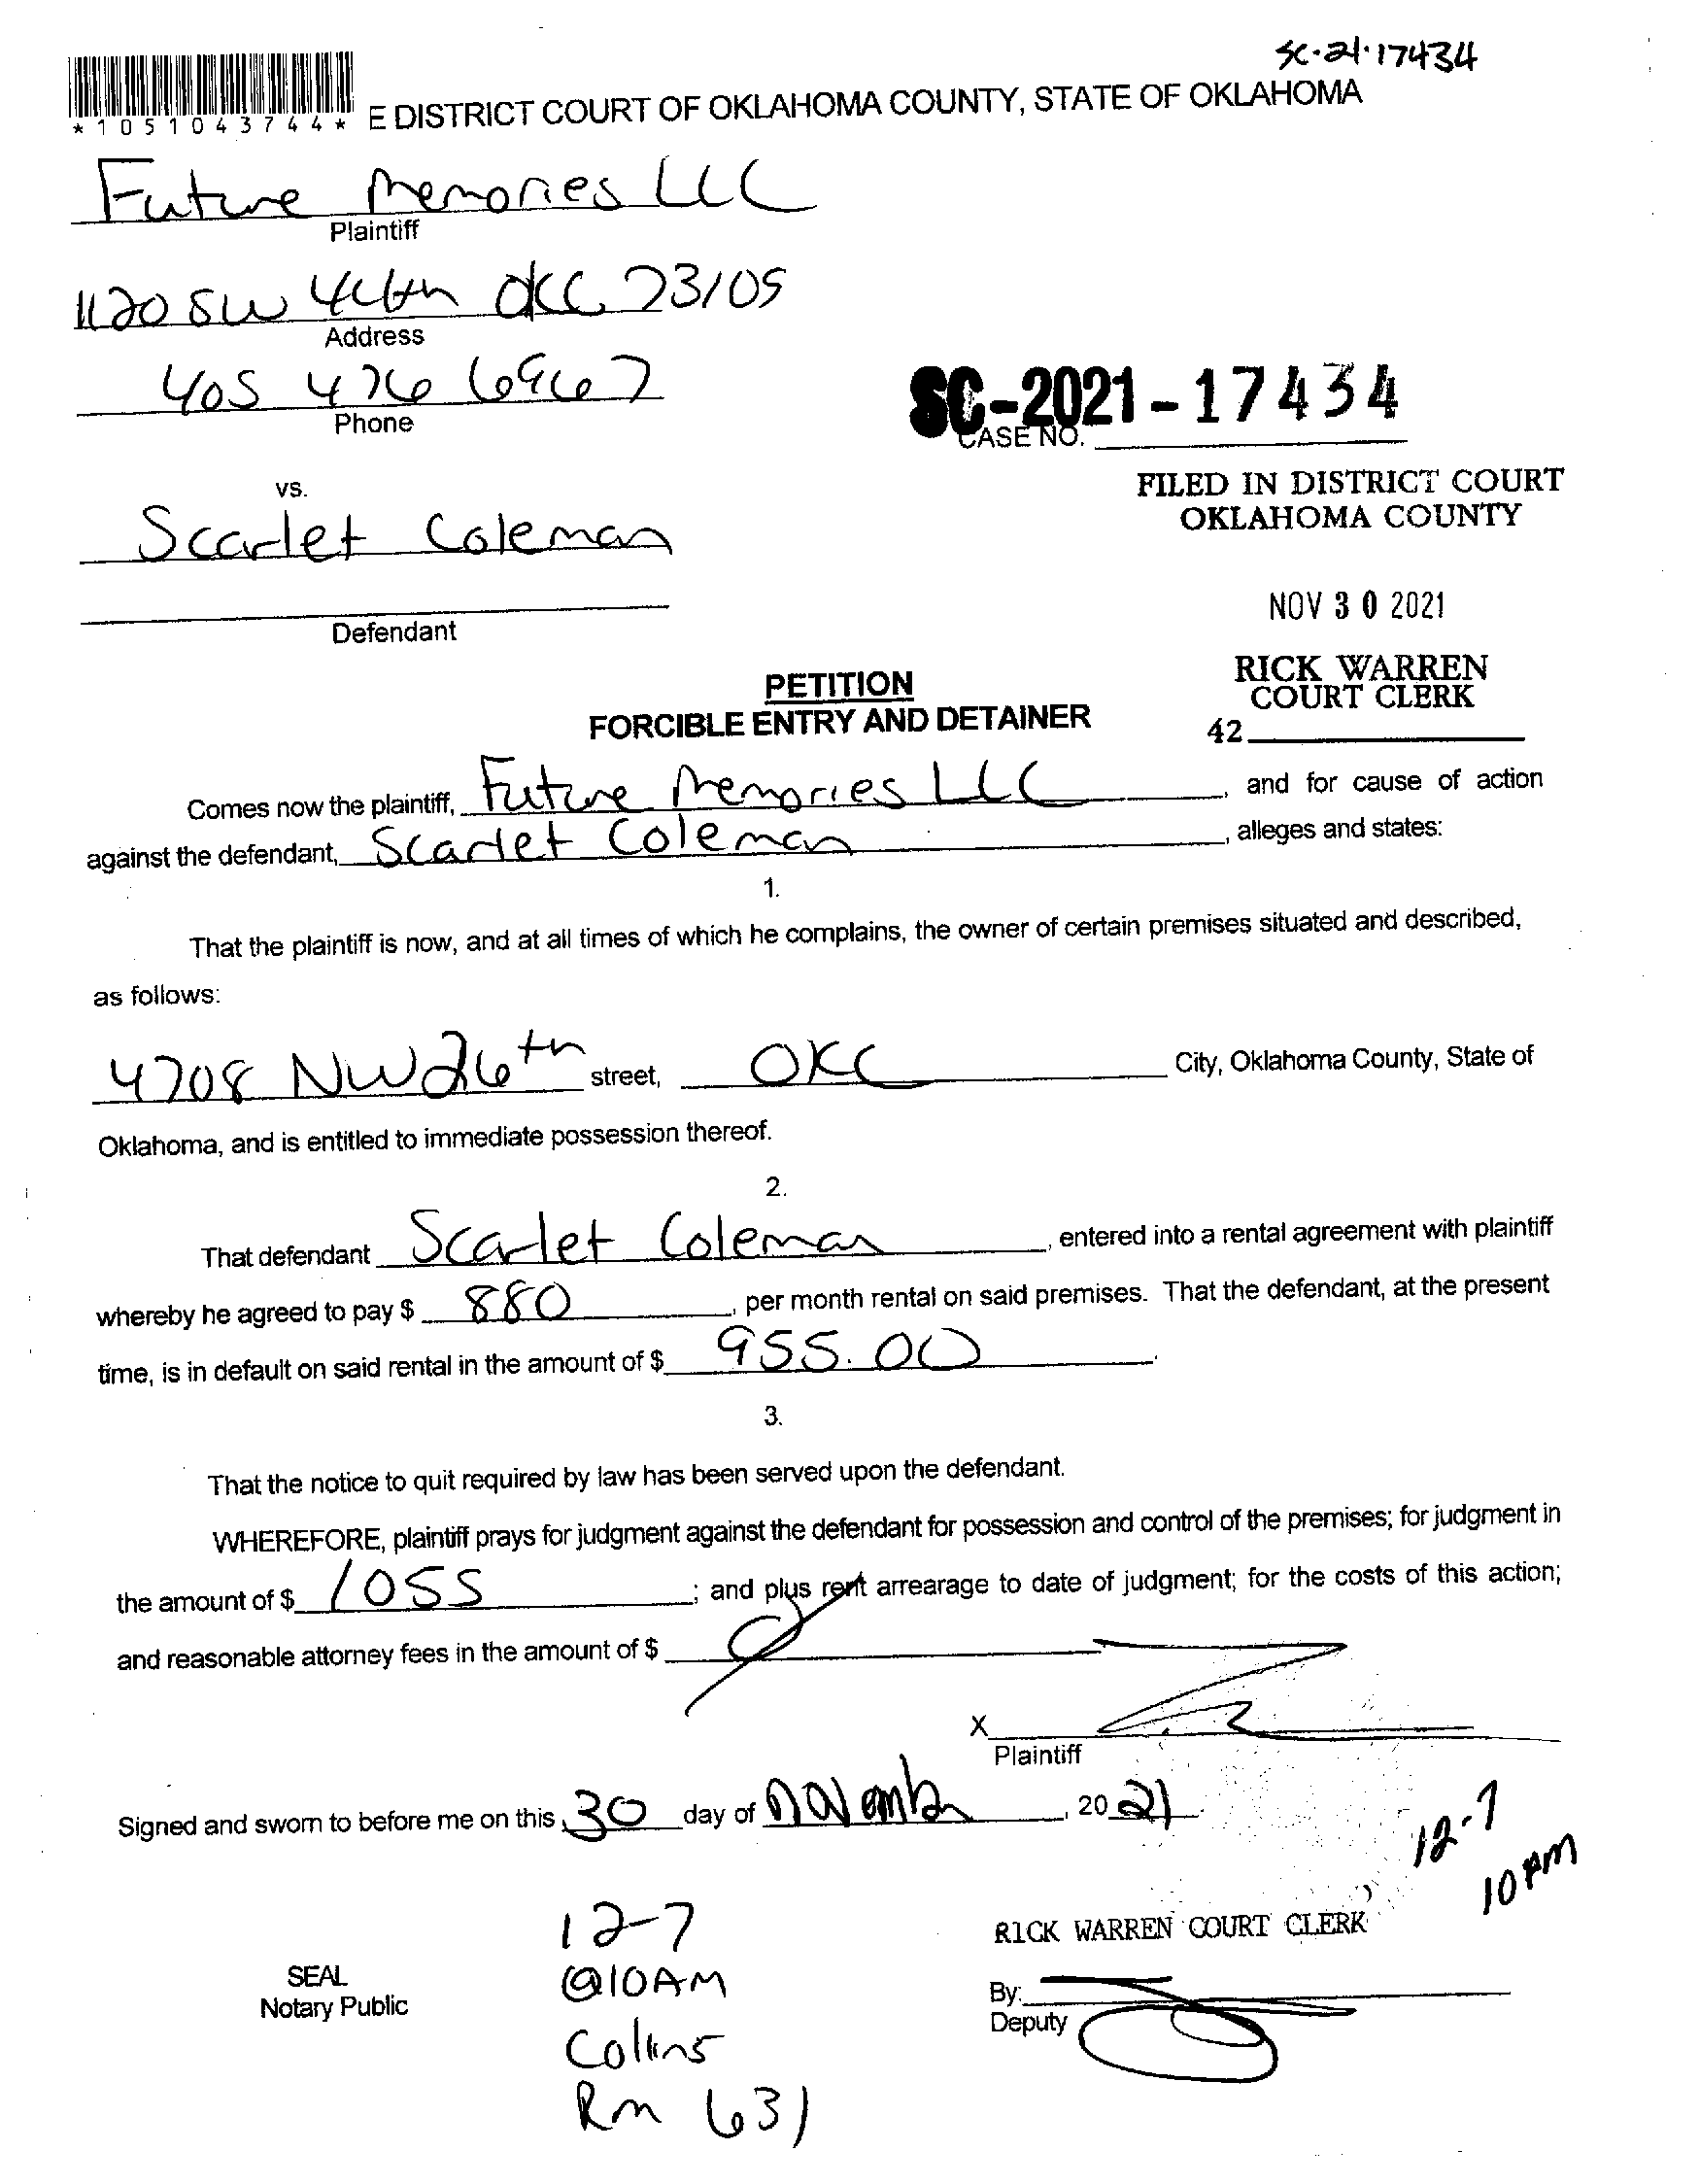 SC-21-17434
*1051043744* E DISTRICT COURT OF OKLAHOMA COUNTY, STATE OF OKLAHOMA
Future Memories LLC
Plaintiff
1120 SW 44th OKC 73109
Address
405 476 6967
Phone
SC-2021-17434
CASE NO.
vs.
FILED IN DISTRICT COURT
OKLAHOMA COUNTY
Scarlet Coleman
NOV 30 2021
Defendant
RICK WARREN
COURT CLERK
42
PETITION
FORCIBLE ENTRY AND DETAINER
Comes now the plaintiff, Future Memories LLC, and for cause of action
against the defendant, Scarlet Coleman, alleges and states:
1.
That the plaintiff is now, and at all times of which he complains, the owner of certain premises situated and described,
as follows:
4708 NW 26th street, OKC City, Oklahoma County, State of
Oklahoma, and is entitled to immediate possession thereof.
2.
That defendant Scarlet Coleman, entered into a rental agreement with plaintiff
whereby he agreed to pay $ 880, per month rental on said premises. That the defendant, at the present
time, is in default on said rental in the amount of $ 955.00.
3.
That the notice to quit required by law has been served upon the defendant.
WHEREFORE, plaintiff prays for judgment against the defendant for possession and control of the premises; for judgment in
the amount of $ 1055; and plus rent arrearage to date of judgment; for the costs of this action;
and reasonable attorney fees in the amount of $
X
Plaintiff
Signed and sworn to before me on this 30 day of November, 20 21
12-7
10 AM
12-7
@10AM
Collins
Rm 631
SEAL
Notary Public
RICK WARREN COURT CLERK
By:
Deputy